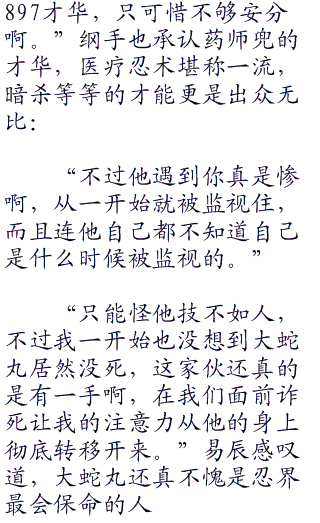 897才华，只可惜不够安分
啊。”纲手也承认药师兜的
才华，医疗忍术堪称一流，
暗杀等等的才能更是出众无
比：
“不过他遇到你真是惨
啊，从一开始就被监视住，
而且连他自己都不知道自己
是什么时候被监视的。”
“只能怪他技不如人，
不过我一开始也没想到大蛇
丸居然没死，这家伙还真的
是有一手啊，在我们面前诈
死让我的注意力从他的身上
彻底转移开来。”易辰感叹
道，大蛇丸还真不愧是忍界
最会保命的人